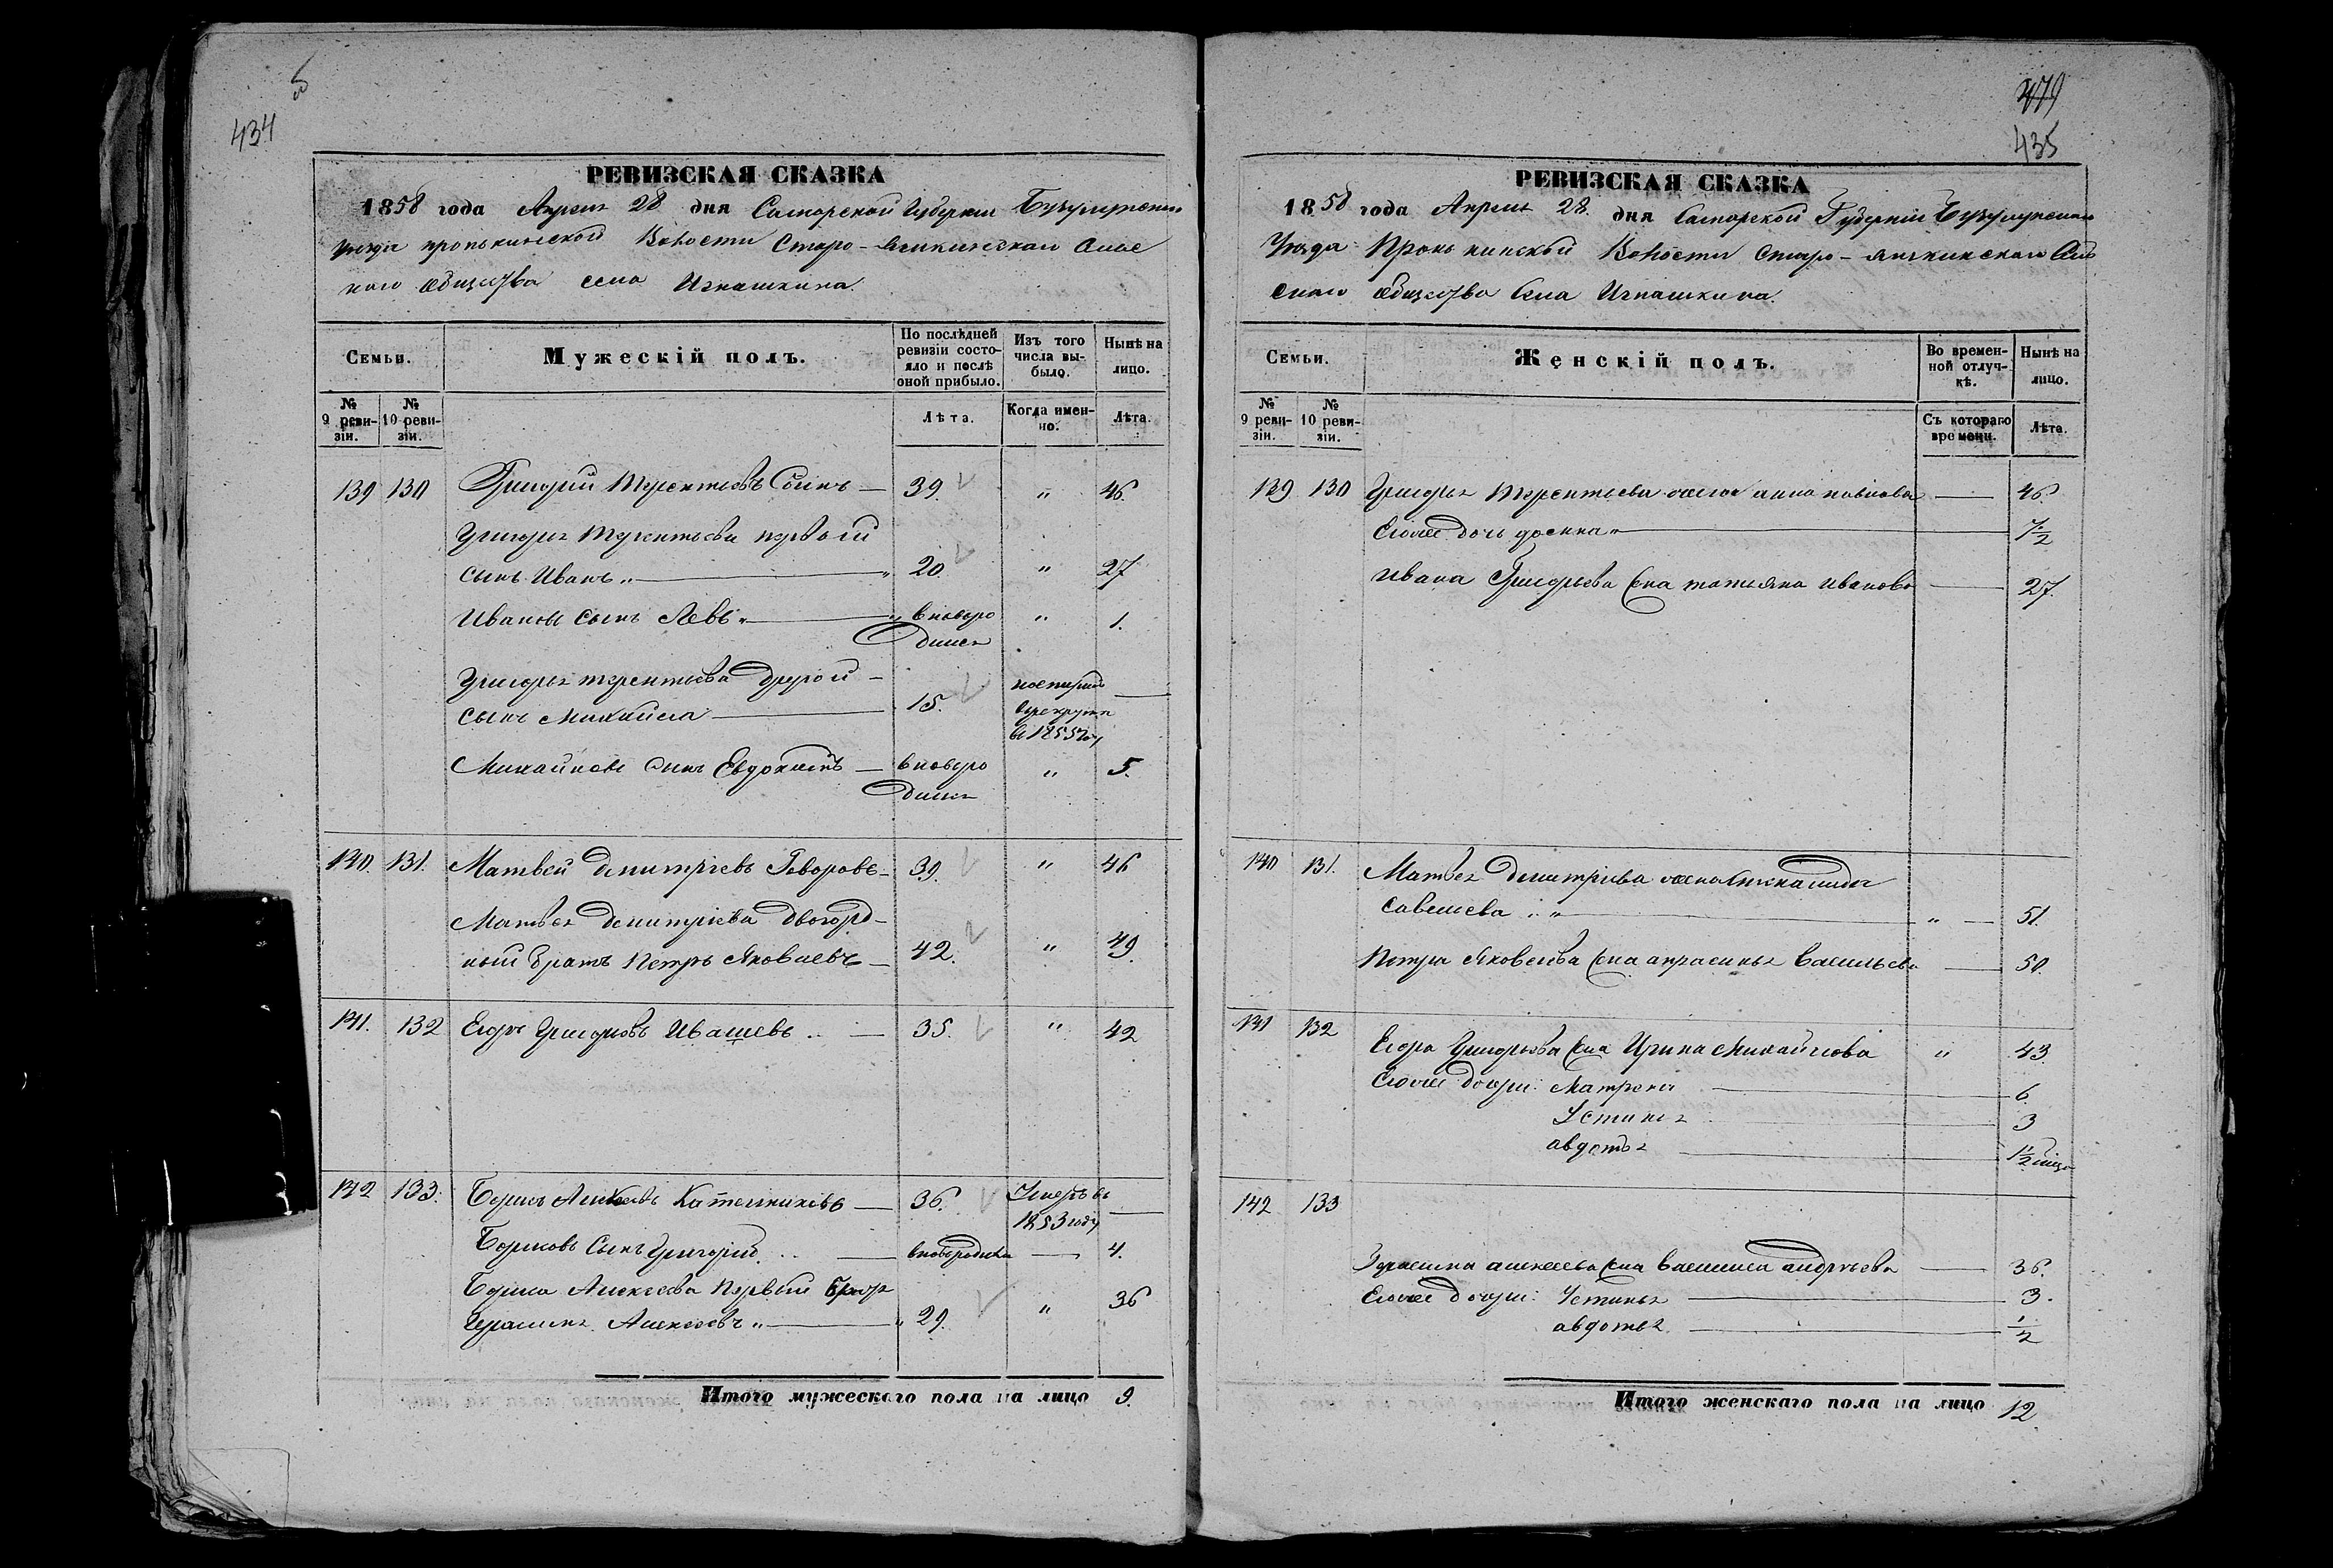 434
РЕВИЗСКАЯ СКАЗКА
1858 года Апреля 28 дня Самарской Губернии Бузулукскаго
уезда пронькинской Волости Старо-Ягикинскаго Сель
наго общества села Игнашкина.
Семьи.
Мужескій полъ.
По послѣдней ревизіи состояло и послѣ оной прибыло.
Изъ того числа выбыло.
Нынѣ на лицо.
№ 9 ревизіи.
№ 10 ревизіи.
Лѣта.
Когда именно.
Лѣта.
139 130 Григорий Терентьевъ 39. " 46.
Григорья Терентьева первый
сынъ Иванъ " 20. " 27
Ивановъ сынъ Левъ " вноворо " 1.
дился
Григорья терентьева другой
сынъ Михайла 15.
в 1855 году
Михайловъ сынъ Евдокимъ вноворо " 5.
дился
140. 131. Матвей Дмитріевъ Говоровъ 39. " 46
Матвея Дмитріева двоюрод
ный братъ Петръ Яковлевъ 42. " 49.
141. 132 Егоръ Григорьевъ Ивашевъ 35. " 42
142 133. Борисъ Алексеевъ Котельниковъ 36. Умеръ въ
1853 году
Борисовъ сынъ Григорий вновородился 4.
Бориса Алексеева первый брат
Герасимъ Алексеевъ " 29. " 36
Итого мужескаго пола на лицо 9.
479
435
РЕВИЗСКАЯ СКАЗКА
1858 года Апреля 28. дня Самарской Губерніи Бузулукскаго
Уезда Пронькинской Волости Старо-ягикинскаго Сель
скаго общества Села Игнашкина.
Семьи.
Женскій полъ.
Во временной отлучкѣ.
Нынѣ на лицо.
№ 9 ревизіи.
№ 10 ревизіи.
Съ котораго времени.
Лѣта.
139 130 Григорья Терентьева жена анна павлова 46.
Егоже дочь 7 1/2
Ивана Григорьева жена татьяна иванова 27.
140 131. Матвея Дмитріева жена
савельева " " 51.
Петра Яковлева жена апрасинья васильева 50.
141 132
Егора Григорьева жена Ирина Михайлова " 43
Егоже дочери: Матрена 6.
Устинья 3
авдотья 1 1/2
142 133
Герасима алексеева жена василиса андреева 36.
Егоже дочери: Устинья 3.
авдотья 1/2
Итого женскаго пола на лицо 12.